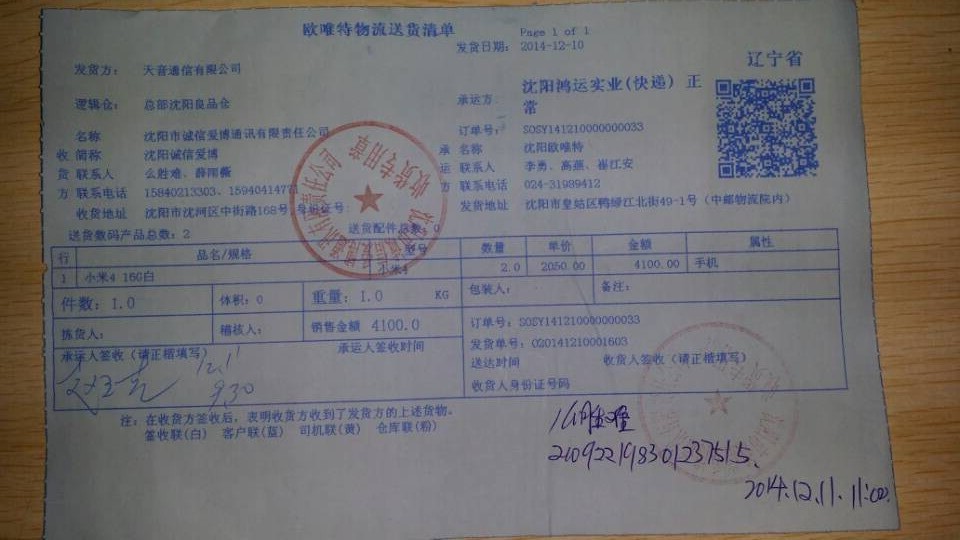 欧唯特物流送货清单
Page 1 of 1
发货日期: 2014-12-10
辽宁省
发货方: 天音通信有限公司
承运方: 沈阳鸿运实业(快递) 正常
逻辑仓: 总部沈阳良品仓
订单号: SOSY141210000000033
收货方
名称 沈阳市诚信爱博通讯有限责任公司
简称 沈阳诚信爱博
联系人 么胜难、薛雨薇
联系电话 15840213303、1594041477
收货地址 沈阳市沈河区中街路168号 身份证号:
承运方
名称 沈阳欧唯特
联系人 李勇、高燕、崔江安
联系电话 024-31989412
发货地址 沈阳市皇姑区鸭绿江北街49-1号(中邮物流院内)
送货数码产品总数: 2 送货配件总数: 0
行 品名/规格 型号 数量 单价 金额 属性
1 小米4 16G白 小米4 2.0 2050.00 4100.00 手机
件数: 1.0 体积: 0 重量: 1.0 KG 包装人: 备注:
拣货人: 稽核人: 销售金额 4100.0 订单号: SOSY141210000000033
发货单号: O20141210001603
承运人签收(请正楷填写) 承运人签收时间
送达时间 收货人签收(请正楷填写)
收货人身份证号码
12.11
9.30
注: 在收货方签收后, 表明收货方收到了发货方的上述货物。
签收联(白) 客户联(蓝) 司机联(黄) 仓库联(粉)
210922198301237515.
2014.12.11. 11:00.
收货专用章